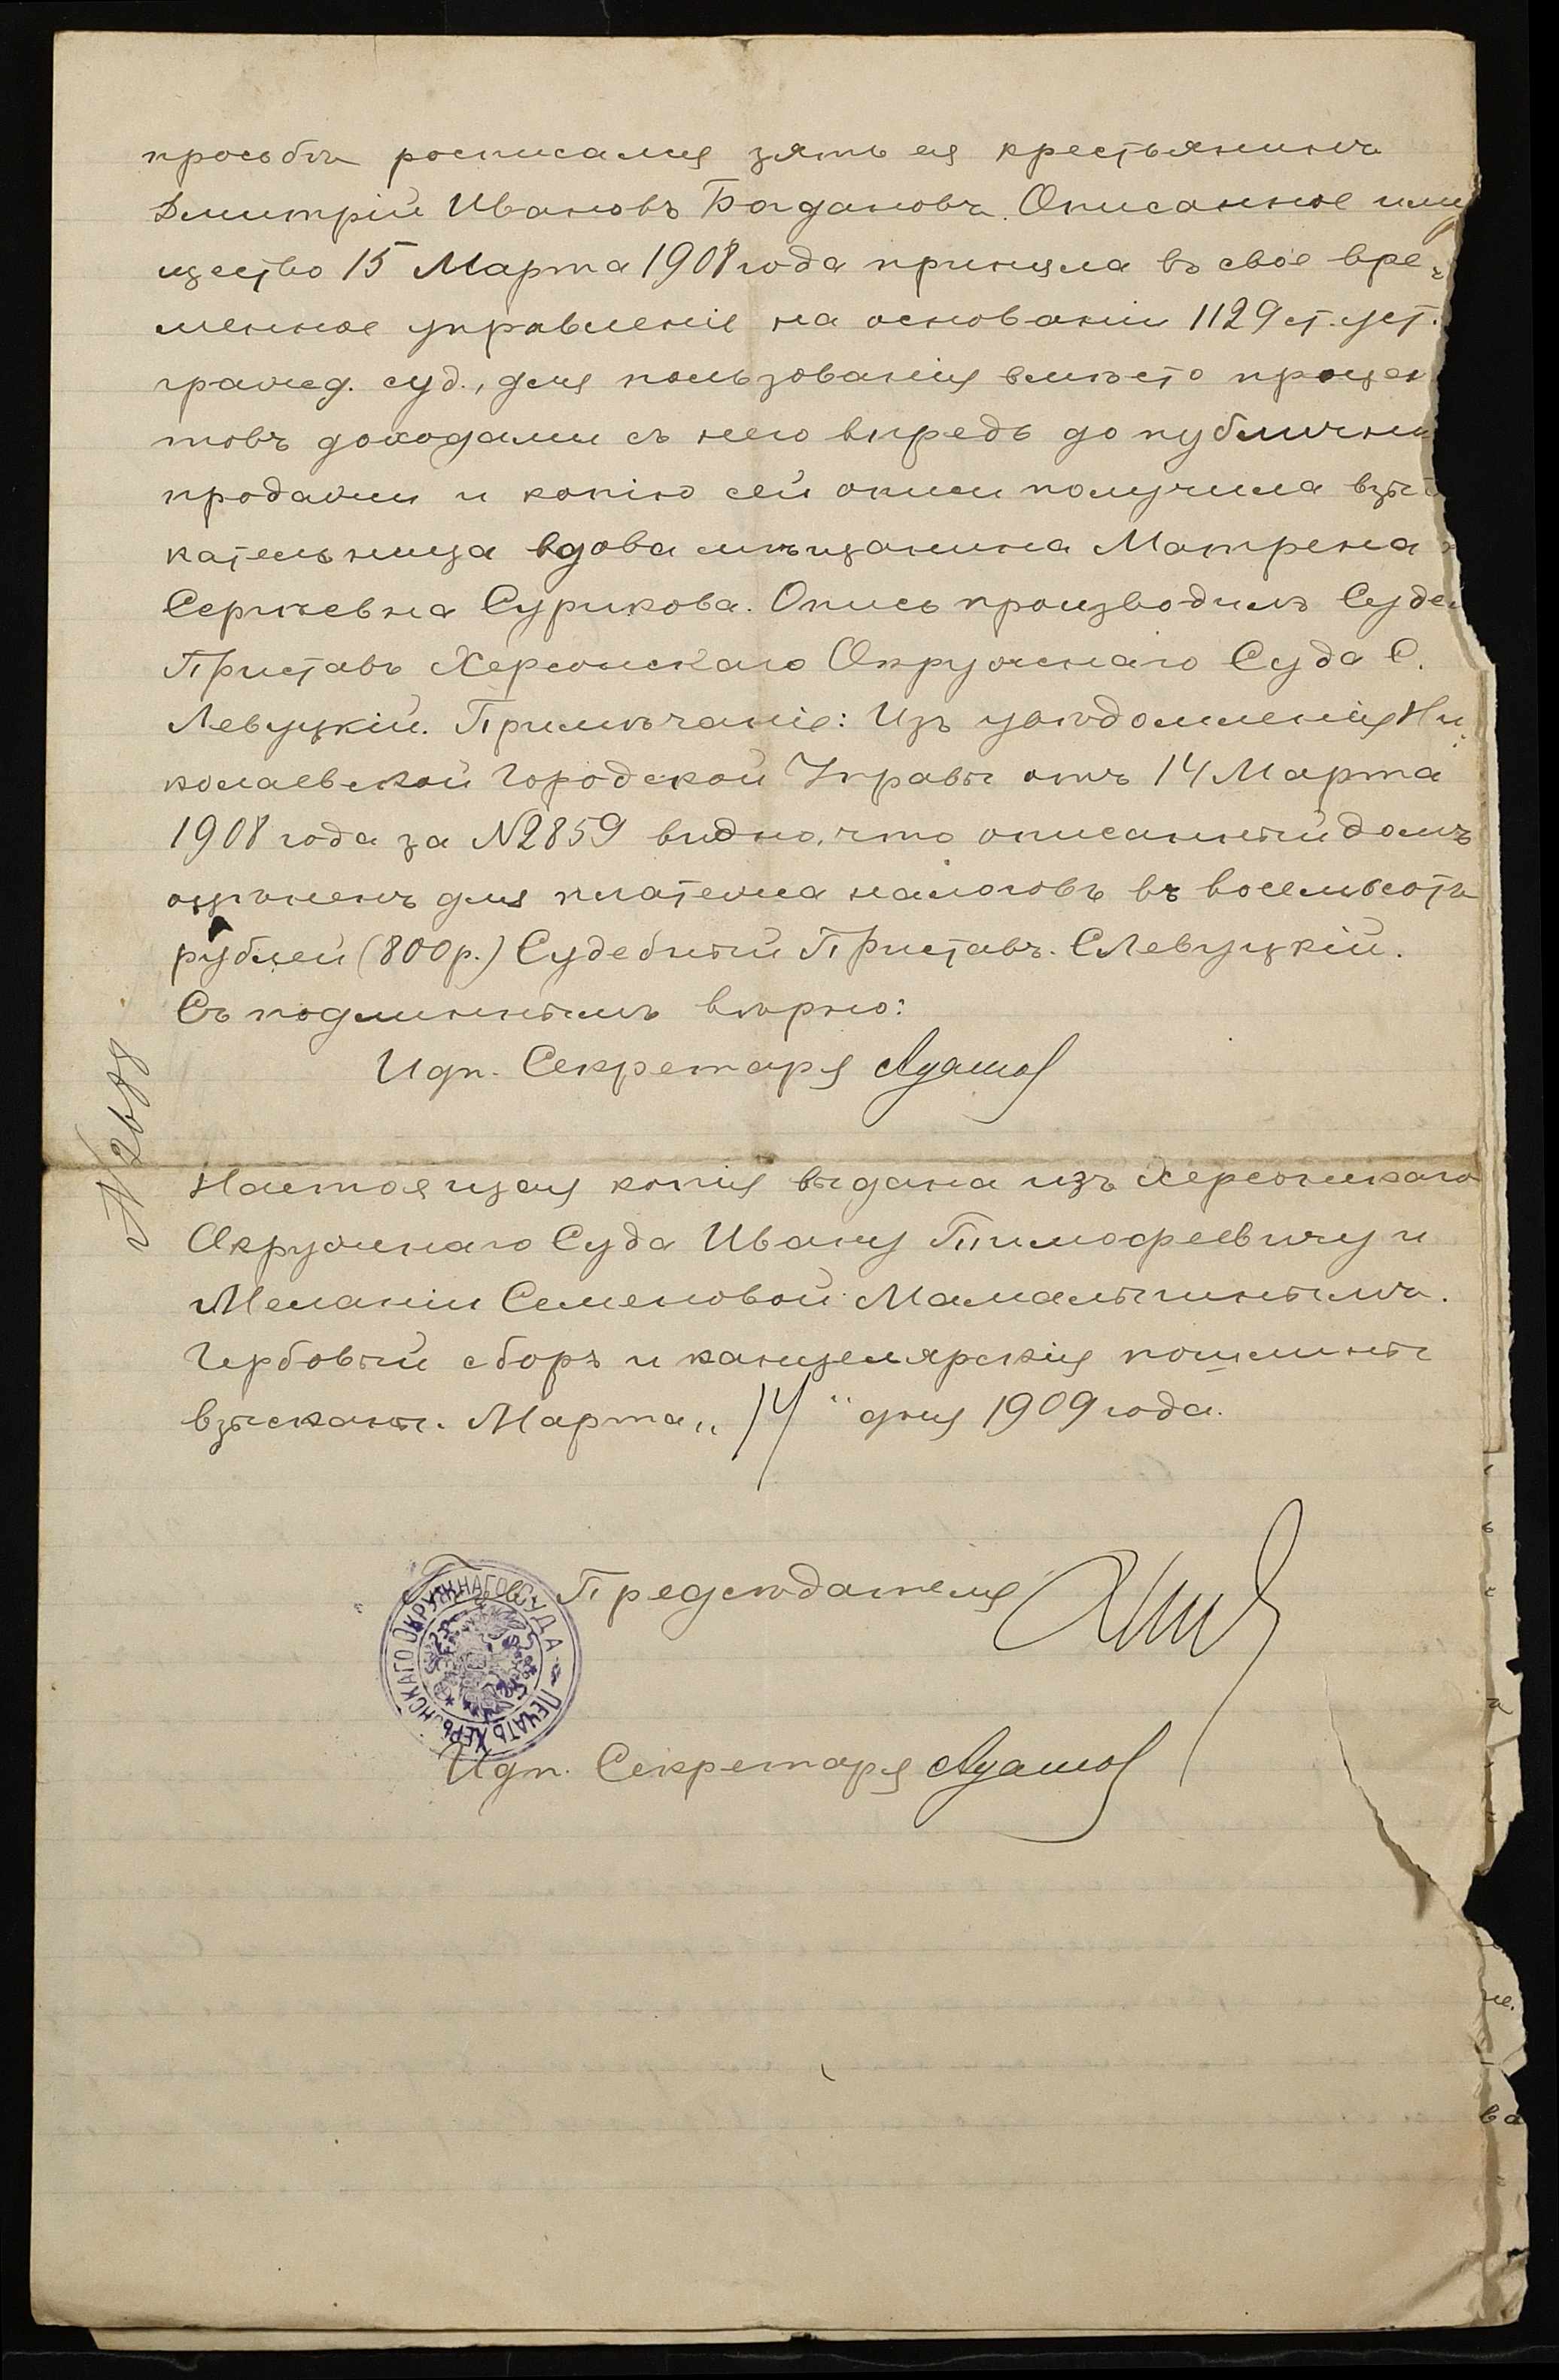 просьбѣ росписался зять ея крестьянинъ
Дмитрій Ивановъ Богдановъ. Описанное иму
щество 15 Марта 1908 года приняла въ свое вре-
менное управленіе на основаніи 1129 ст. уст.
гражд. суд., для пользованія вмѣсто процен
товъ доходами съ него впредь до публичн
продажи и копію сей описи получила взы
кательница вдова мѣщанина Матрена
Сергѣевна Сурикова. Опись производилъ Суде
Приставъ Херсонскаго Окружнаго Суда С.
Левуцкій. Примѣчаніе: Изъ увѣдомленія Ни-
колаевской Городской Управы отъ 14 Марта
1908 года за №2859 видно, что описанный домъ
оцѣненъ для платежа налоговъ въ восемьсотъ
рублей (800 р.) Судебный Приставъ. С Левуцкій.
Съ подлиннымъ вѣрно:
И д п. Секретаря
Настоящая копія выдана изъ Херсонскаго
Окружнаго Суда Ивану Тимофеевичу и
Меланіи Семеновой Мамалыгинымъ.
Гербовый сборъ и канцелярскія пошлины
взысканы. Марта „ 14 " дня 1909 года.
Предсѣдателя
ПЕЧАТЬ ХЕРСОНСКАГО ОКРУЖНАГО СУДА
И д п. Секретаря